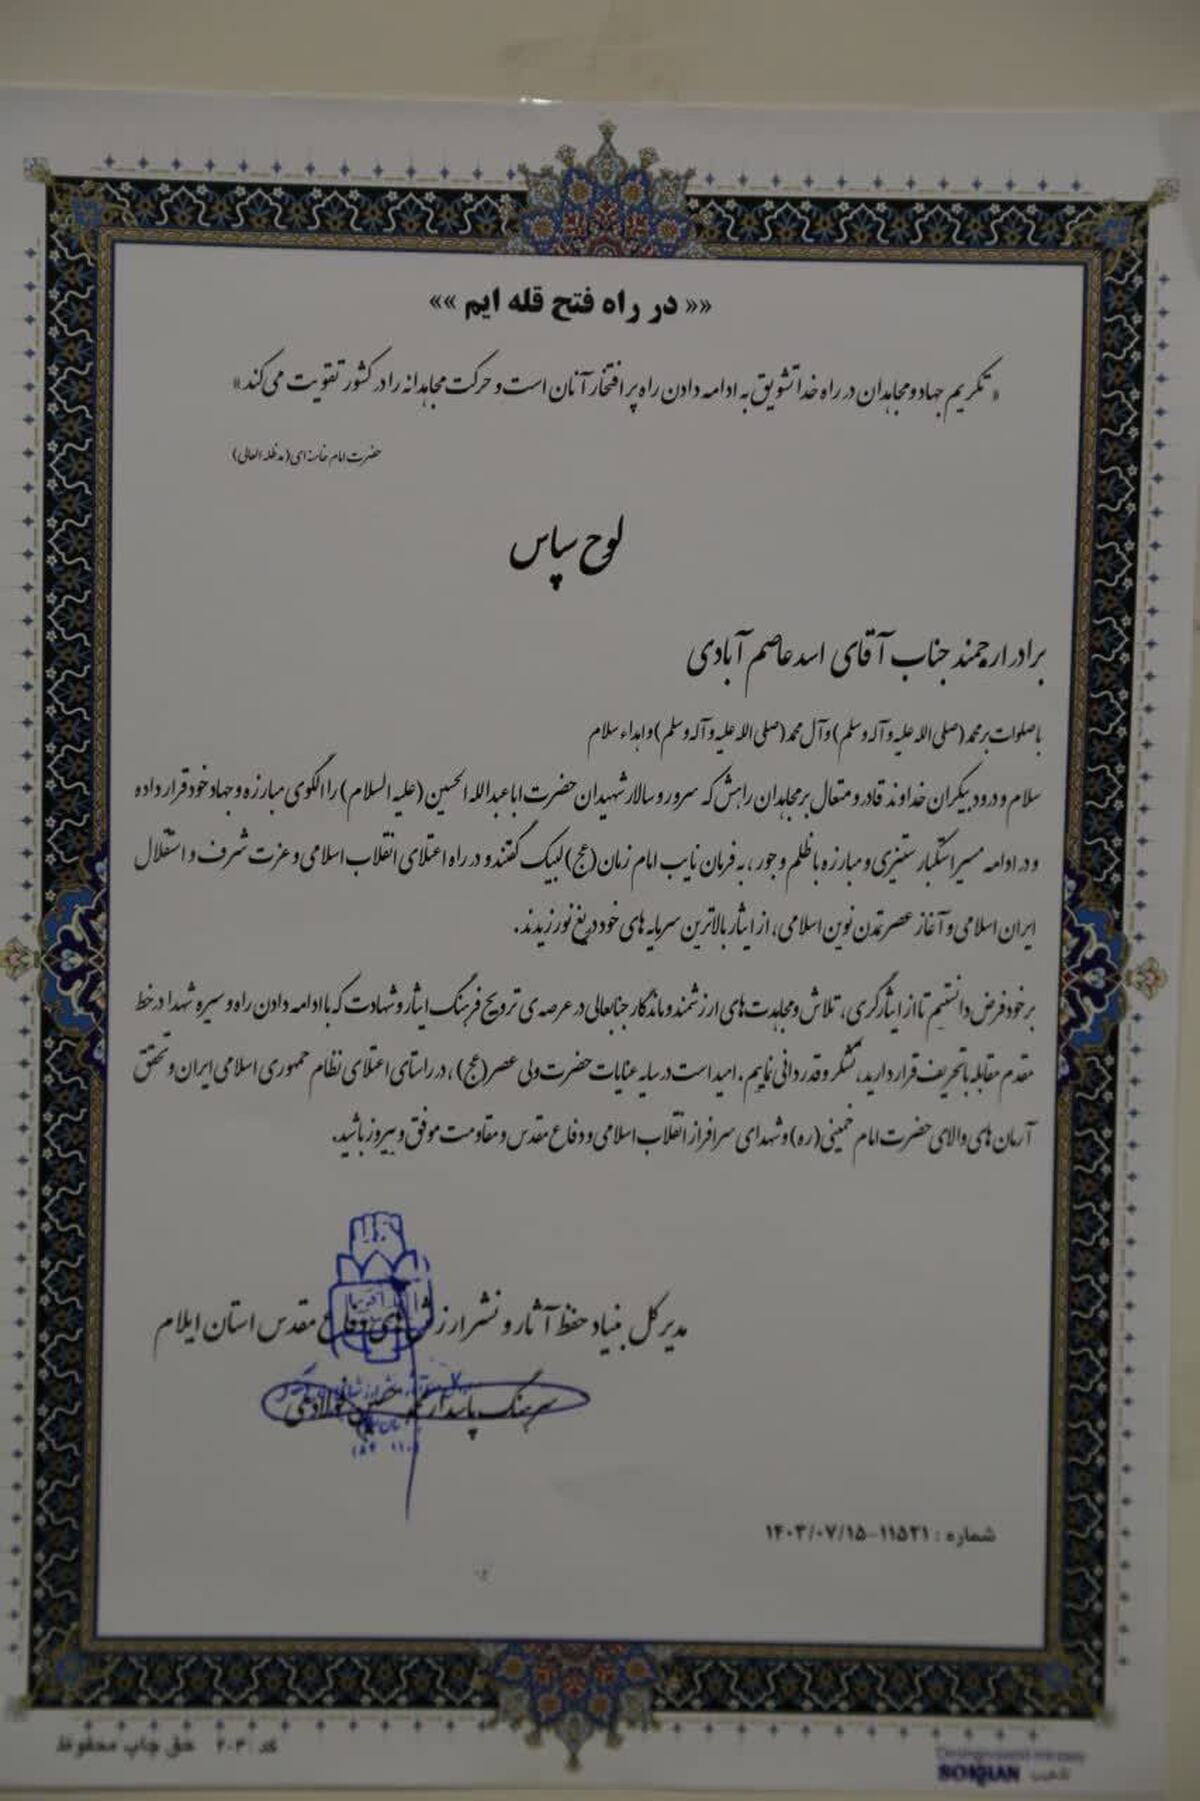 «« در راه فتح قله ایم »»
« تکریم جهاد و مجاهدان در راه خدا تشویق به ادامه دادن راه پر افتخار آنان است و حرکت مجاهدانه را در کشور تقویت می کند »
حضرت امام خامنه ای (مدظله العالی)
لوح سپاس
برادر ارجمند جناب آقای اسد عاصم آبادی
با صلوات بر محمد (صلی الله علیه و آله و سلم) و آل محمد (صلی الله علیه و آله و سلم) و اهداء سلام
سلام و درود بیکران خداوند قادر و متعال بر مجاهدان راهش که سرور و سالار شهیدان حضرت اباعبدالله الحسین (علیه السلام) را الگوی مبارزه و جهاد خود قرار داده
و در ادامه مسیر استکبار ستیزی و مبارزه با ظلم و جور ، به فرمان نایب امام زمان (عج) لبیک گفتند و در راه اعتلای انقلاب اسلامی و عزت شرف و استقلال
ایران اسلامی و آغاز عصر تمدن نوین اسلامی، از ایثار بالاترین سرمایه های خود دریغ نورزیدند .
بر خود فرض دانستیم تا از ایثارگری، تلاش و مجاهدت های ارزشمند و ماندگار جنابعالی در عرصه ی ترویج فرهنگ ایثار و شهادت که با ادامه دادن راه و سیره شهدا در خط
مقدم مقابله با تحریف قرار دارید، تشکر و قدردانی نماییم . امید است در سایه عنایات حضرت ولی عصر (عج) ، در راستای اعتلای نظام جمهوری اسلامی ایران و تحقق
آرمان های والای حضرت امام خمینی (ره) و شهدای سرافراز انقلاب اسلامی و دفاع مقدس و مقاومت موفق و پیروز باشید.
مدیر کل بنیاد حفظ آثار و نشر ارزش های دفاع مقدس استان ایلام
سرهنگ پاسدار
شماره : ۱۱۵۲۱-۱۴۰۳/۰۷/۱۵
کد : ۲۰۳ حق چاپ محفوظ
تذهیب